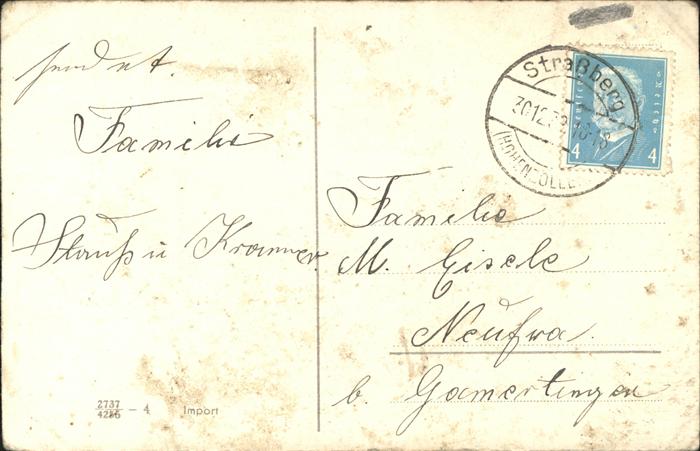 sendet.
Familie
Stauß u Krammer.
2737
4286 - 4 Import
Straßberg
30.12.32.16-18
(HOHENZOLL
4 4
Familie
M. Eisele
Neufra.
b. Gamertingen